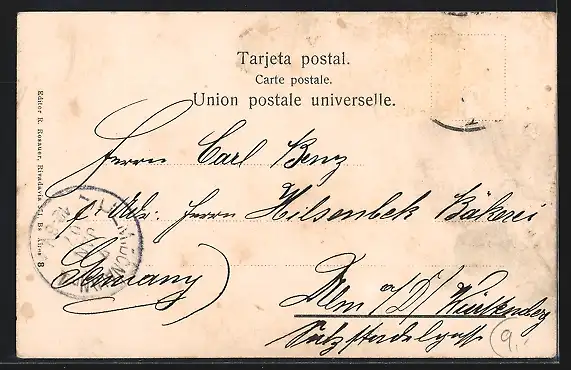 Tarjeta postal.
Carte postale.
Union postale universelle.
Herrn Carl Benz
p. Adr. Herrn Hilsenbek Bäkerei
Germany)
Ulm a/D/ Württenberg
Salzstadelgasse
9.
Editor R. Rosauer, Rivadavia 571, Bs. Aires 8